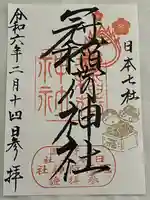 日本七社
冠稲荷神社
令和六年二月十四日参拝